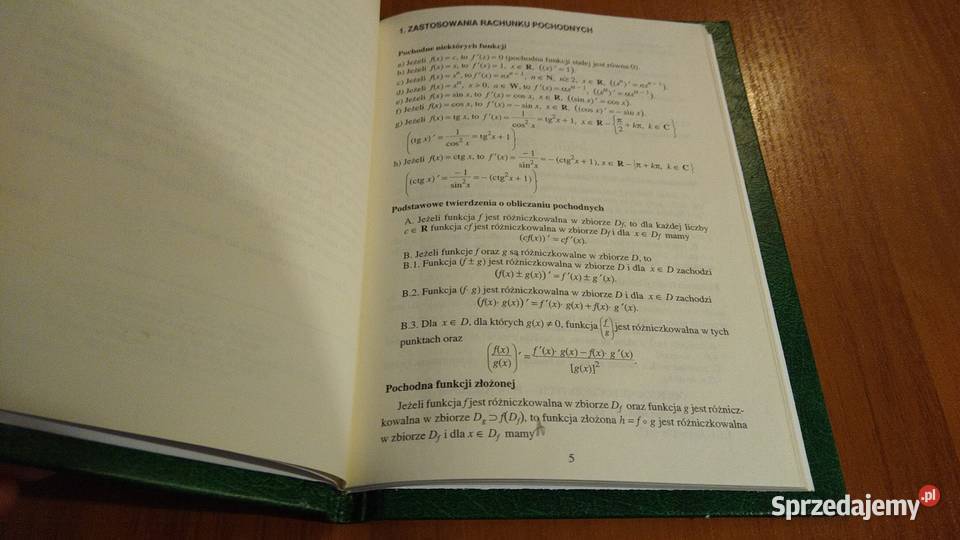 1. ZASTOSOWANIA RACHUNKU POCHODNYCH
Pochodne niektórych funkcji
a) Jeżeli f(x) = c, to f′(x) = 0 (pochodna funkcji stałej jest równa 0).
b) Jeżeli f(x) = x, to f′(x) = 1, x ∈ R, ((x)′ = 1).
c) Jeżeli f(x) = xⁿ, to f′(x) = nxⁿ⁻¹, n ∈ N, n ≥ 2, x ∈ R, ((xⁿ)′ = nxⁿ⁻¹).
d) Jeżeli f(x) = x^α, x > 0, α ∈ W, to f′(x) = αx^(α−1), ((x^α)′ = αx^(α−1)).
e) Jeżeli f(x) = sin x, to f′(x) = cos x, x ∈ R, ((sin x)′ = cos x).
f) Jeżeli f(x) = cos x, to f′(x) = − sin x, x ∈ R, ((cos x)′ = − sin x).
g) Jeżeli f(x) = tg x, to f′(x) = 1/cos² x = tg²x + 1, x ∈ R − {π/2 + kπ, k ∈ C}
((tg x)′ = 1/cos² x = tg²x + 1)
h) Jeżeli f(x) = ctg x, to f′(x) = −1/sin²x = − (ctg²x + 1), x ∈ R − {π + kπ, k ∈ C}
((ctg x)′ = −1/sin²x = − (ctg²x + 1))
Podstawowe twierdzenia o obliczaniu pochodnych
A. Jeżeli funkcja f jest różniczkowalna w zbiorze D_f, to dla każdej liczby
c ∈ R funkcja cf jest różniczkowalna w zbiorze D_f i dla x ∈ D_f mamy
(cf(x))′ = cf′(x).
B. Jeżeli funkcje f oraz g są różniczkowalne w zbiorze D, to
B.1. Funkcja (f ± g) jest różniczkowalna w zbiorze D i dla x ∈ D zachodzi
(f(x) ± g(x))′ = f′(x) ± g′(x).
B.2. Funkcja (f· g) jest różniczkowalna w zbiorze D i dla x ∈ D zachodzi
(f(x)· g(x))′ = f′(x)· g(x) + f(x)· g′(x).
B.3. Dla x ∈ D, dla których g(x) ≠ 0, funkcja (f/g) jest różniczkowalna w tych
punktach oraz
(f(x)/g(x))′ = f′(x)· g(x) − f(x)· g′(x) / [g(x)]².
Pochodna funkcji złożonej
Jeżeli funkcja f jest różniczkowalna w zbiorze D_f oraz funkcja g jest różnicz-
kowalna w zbiorze D_g ⊃ f(D_f), to funkcja złożona h = f ∘ g jest różniczkowalna
w zbiorze D_f i dla x ∈ D_f mamy
5
Sprzedajemy.pl